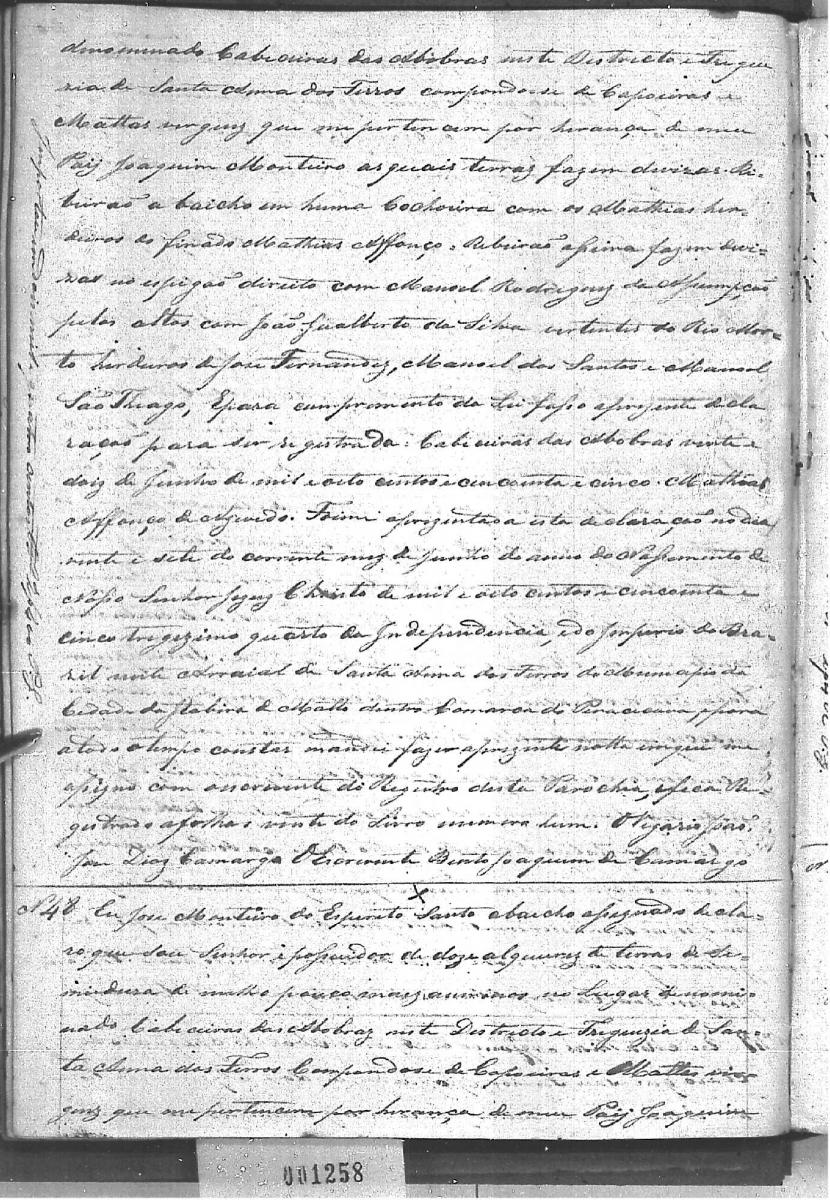 denominado Cabeceiras das Abobras neste Districto e Fregue
zia de Santa Anna dos Ferros compondose de Capoeiras e
Mattas virgenz que me pertencem por herança de meu
Paij Joaquim Monteiro as quais terras fazem divizas Ri-
beirão a baicho em huma Cochoeira com os Mathias her-
deiros do finado Mathias Affonço. Ribeirão assima fazem devi-
zas no espigaõ direito com Manoel Rodriguez da Assumpçaõ
pelos altos com Joaõ Gualberto da Silva vertentes do Rio Mor-
to herdeiros de Jose Fernandez, Manoel dos Santos e Manoel
Saõ Thiago, Epara comprimento da Lei fasso aprezente decla
raçaõ para ser registrada. Cabeceiras das Abobras vinte e
doiz de Junho de mil e oito centos e cincoenta e cinco. Mathias
Affonço de Azevedo. Foime aprezentada esta declaraçaõ no dia
vinte e sete do corrente mez de Junho do anno do Nassimento de
Nosso Senhor Jezuz Christo de mil e oito centos e cincoenta e
cinco trigezimo quarto da Independencia, e do Imperio do Bra-
zil neste Arraial de Santa Anna dos Ferros do Municipio da
Cidade da Itabira de Matto dentro Comarca do Peracicava, e para
atodo o tempo constar mandei fazer aprezente notta em que me
assigno com o escrevente do Registro desta Parochia, e fica Re-
gistrado a folhas vinte do Livro numero hum. O Vigario Joaõ
Joze Diaz Camargo O Escrevente Bento Joaquim de Camargo
N 48 Eu Jose Monteiro do Espirito Santo abaicho assignado decla-
ro que sou Senhor e possuidor de doze alqueirez de terras de Se-
meadura de milho pouco mais ou menos no Lugar denomi-
nado Cabeceiras das Abobraz neste Districto e Freguezia de San-
ta Anna dos Ferros Compondose de Capoeiras e Mattas vir-
genz que me pertencem por herança de meu Paij Joaquim
001258